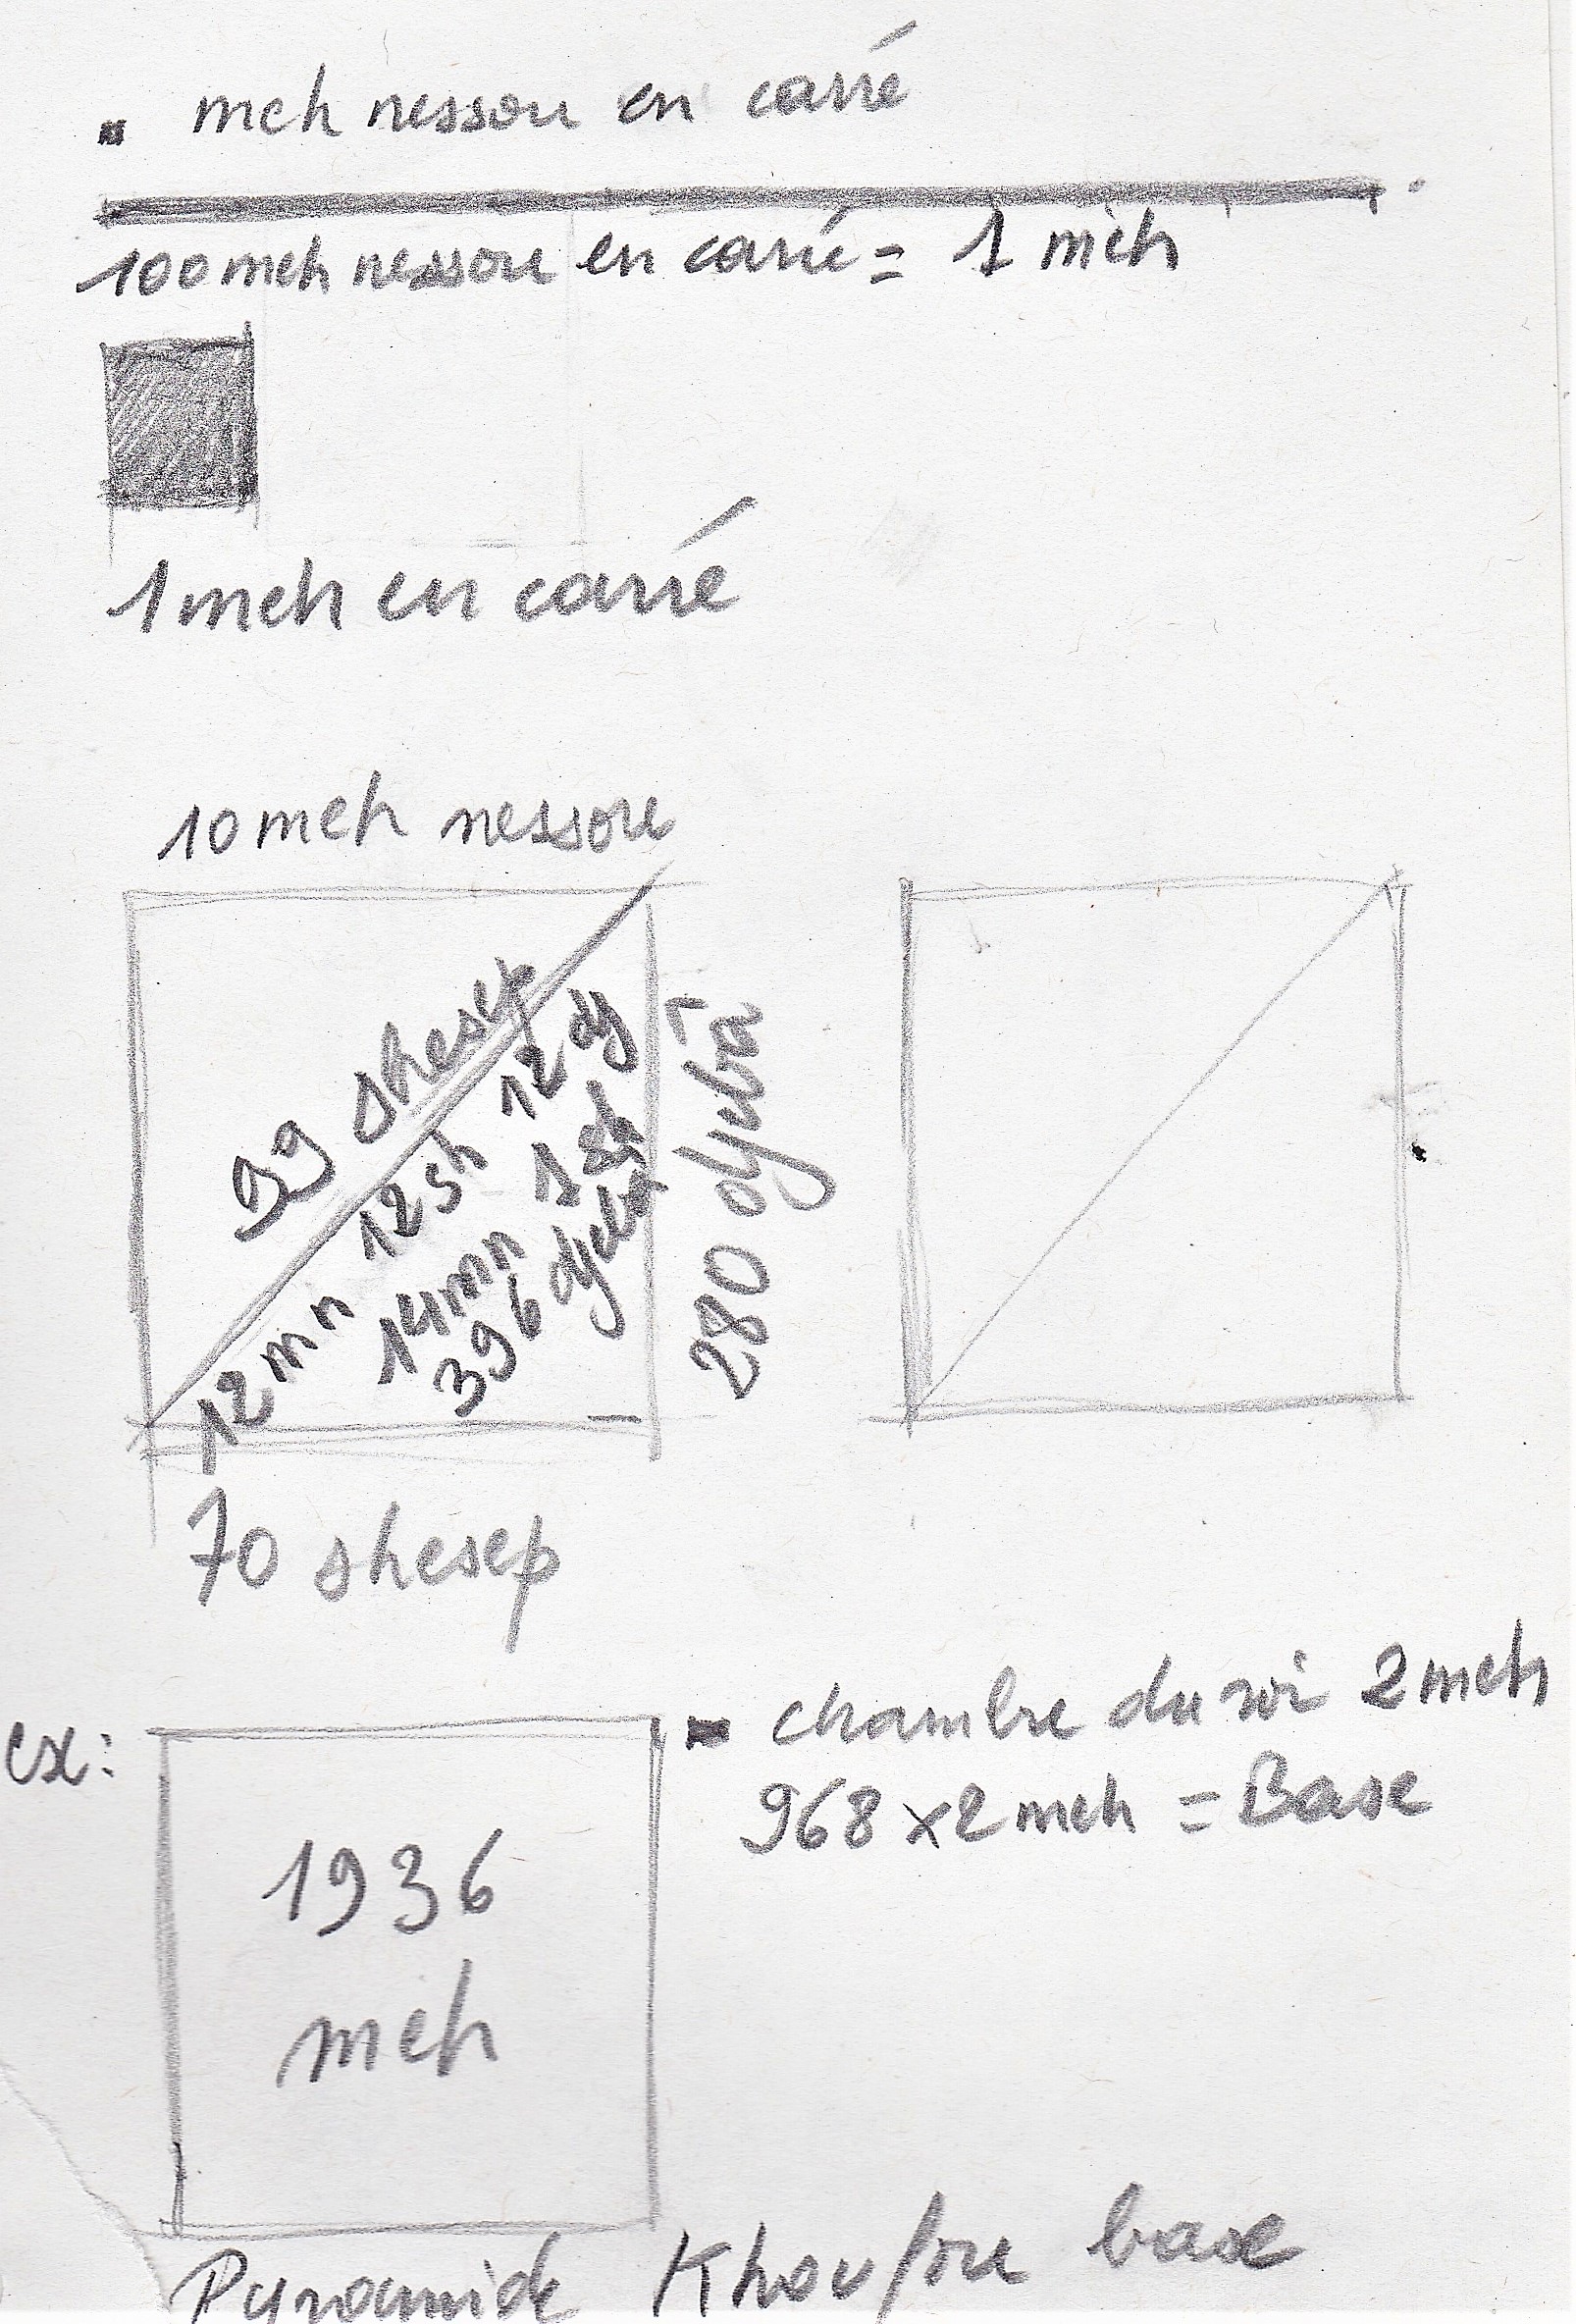 meh nessou en carré
100 meh nessou en carré = 1 meh
1 meh en carré
10 meh nessou
99 shesep
12 mn 12 sh 12 dj
14 mn 1 sh
396 djeba
280 djeba
70 shesep
ex:
1936
meh
chambre du roi 2 meh
968 x 2 meh = Base
Pyramide Khoufou base